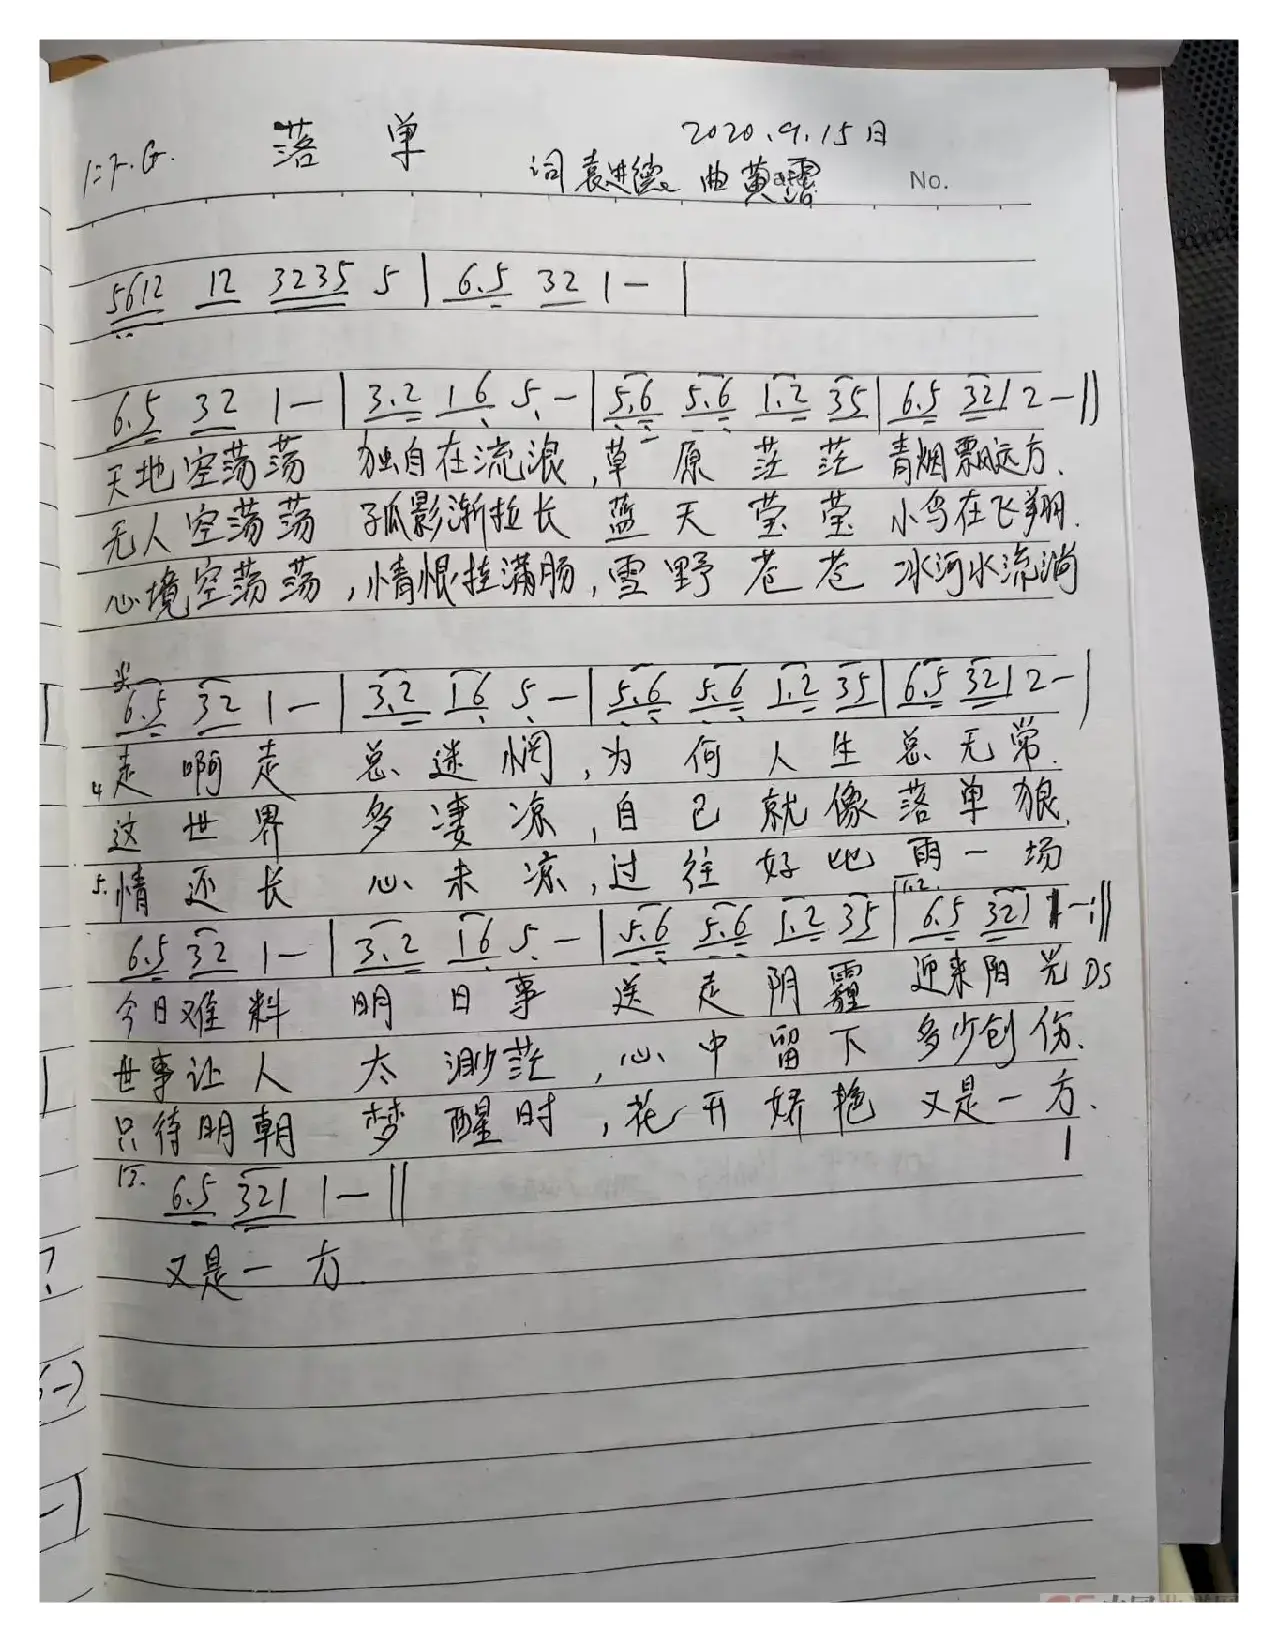 落单 2020.9.15日
1=F.G. 词袁进德 曲黄 No.
5612 12 3235 5 | 6.5 32 1 — |
6.5 32 1 — | 3.2 16 5. — | 5.6 5.6 1.2 35 | 6.5 321 2 — ||
天地空荡荡 独自在流浪,草原茫茫 青烟飘远方.
无人空荡荡 孤影渐拉长 蓝天莹莹 小鸟在飞翔.
心境空荡荡,情恨挂满肠,雪野苍苍 冰河水流淌
6.5 32 1 — | 3.2 16 5 — | 5.6 5.6 1.2 35 | 6.5 321 2 — |
4 走啊走 总迷惘,为何人生总无常.
这世界 多凄凉,自己就像落单狼.
5. 情还长 心未凉,过往好比雨一场
6.5 32 1 — | 3.2 16 5 — | 5.6 5.6 1.2 35 | 1.2. 6.5 321 1 — :||
今日难料 明日事 送走阴霾 迎来阳光 DS
世事让人 太渺茫,心中留下 多少创伤.
只待明朝 梦醒时,花开娇艳 又是一方.
13. 6.5 321 1 — ||
又是一方.